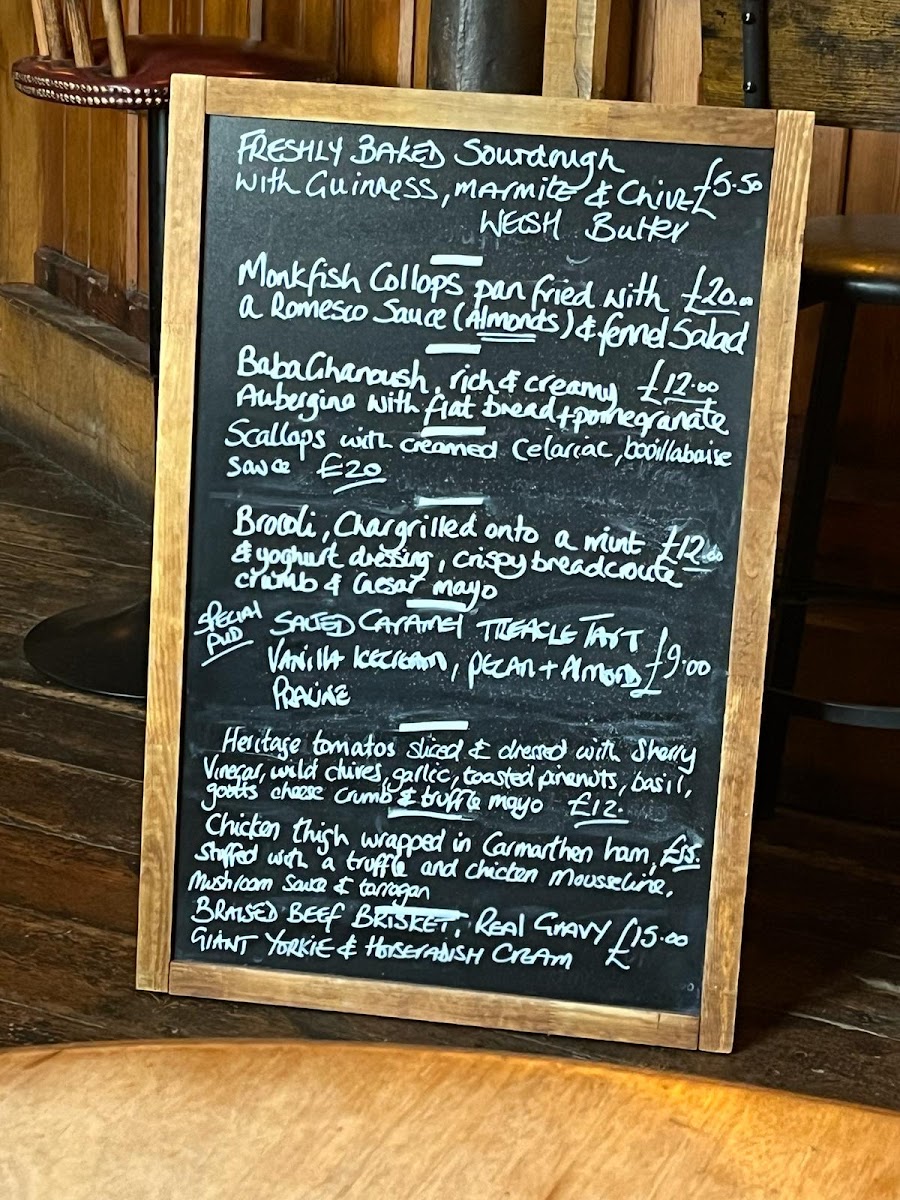 FRESHLY BAKED Sourdough
with Guinness, MARMITE & Chive £5.50
WELSH Butter
Monkfish Collops pan fried with £20.00
a Romesco Sauce (Almonds) & fennel Salad
Baba Ghanoush, rich & creamy £12.00
Aubergine with flat bread + pomegranate
Scallops with creamed Celariac, booillabaise
sauce £20
Brocoli, Chargrilled onto a mint £12.00
& yoghurt dressing, crispy breadcroute
crumb & Caesar mayo
SPECIAL
PUD
SALTED CARAMEl TREACLE TART
VANILLA ICECREAM, PECAN + Almond £9.00
PRALINE
Heritage tomatos sliced & dressed with Sherry
Vinegar, wild chives, garlic, toasted pinenuts, basil,
goats cheese crumb & truffle mayo £12.
Chicken thigh wrapped in Carmarthen ham, £15.
stuffed with a truffle and chicken mousseline,
Mushroom Sauce & tarragan
BRAISED BEEF BRISKET, REAL GRAVY £15.00
GIANT YORKIE & HORSERADISH CREAM